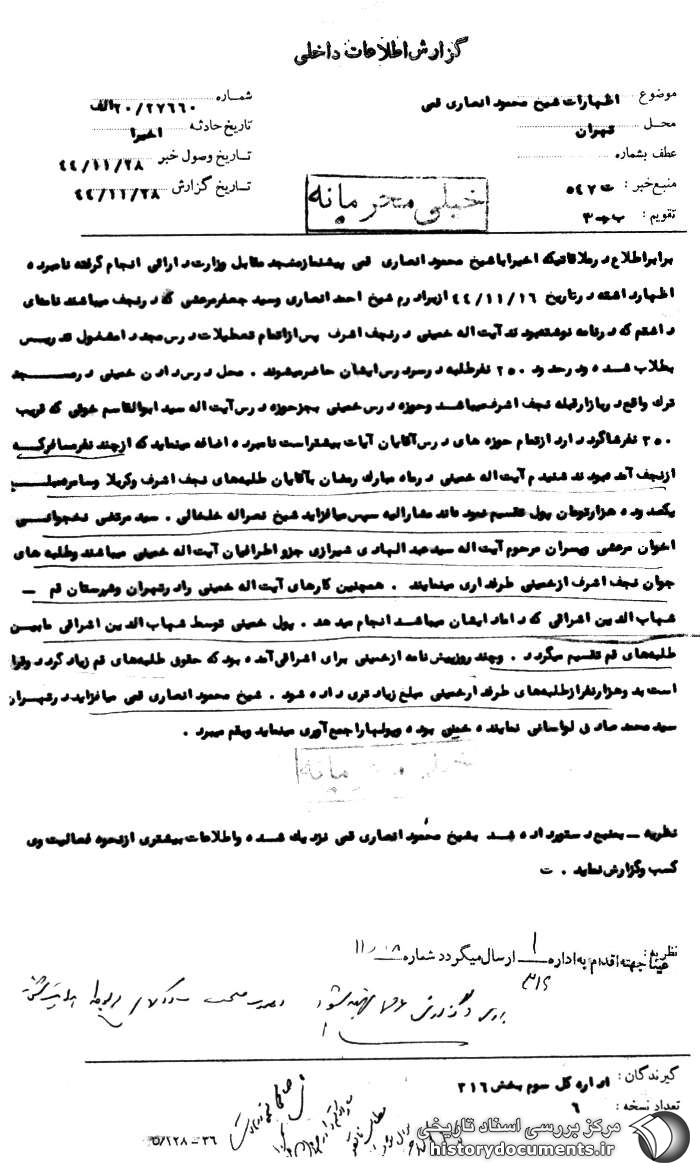 گزارش اطلاعات داخلی
موضوع اظهارات شیخ محمود انصاری قمی
شماره ۲۰/۲۷۶۶۰الف
محل تهران
تاریخ حادثه اخیرا
عطف بشماره
تاریخ وصول خبر ۴۴/۱۱/۲۸
منبع خبر : ت ۵۴۷
تاریخ گزارش ۴۴/۱۱/۲۸
تقویم : ب-۳
خیلی محرمانه
برابر اطلاع در ملاقاتیکه اخیرا با شیخ محمود انصاری قمی پیشنماز مسجد مقابل وزارت دارائی انجام گرفته نامبرده
اظهار داشته در تاریخ ۴۴/۱۱/۱۶ از برادرم شیخ احمد انصاری و سید جعفر مرعشی که در نجف میباشند نامه‌ای
داشتم که در نامه نوشته بودند آیت اله خمینی در نجف اشرف پس از اتمام تعطیلات درس مجددا مشغول تدریس
بطلاب شده و در حدود ۲۵۰ نفر طلبه در سر درس ایشان حاضر میشوند . محل درس دادن خمینی در مسجد
ترک واقع در بازار قبله نجف اشرف میباشد و حوزه درس خمینی بجز حوزه درس آیت اله سید ابوالقاسم خوئی که قریب
۳۵۰ نفر شاگرد دارد از تمام حوزه های درس آقایان آیات بیشتر است نامبرده اضافه مینماید که از چند نفر مسافر که
از نجف آمده بودند شنیدم آیت اله خمینی در ماه مبارک رمضان بآقایان طلبه‌های نجف اشرف و کربلا و سامره مبلغ
یکصد و ده هزار تومان پول تقسیم نموده‌اند مشارالیه سپس میافزاید شیخ نصراله خلخالی . سید مرتضی نخجوانی
اخوان مرعشی و پسران مرحوم آیت اله سید عبدالهادی شیرازی جزو اطرافیان آیت اله خمینی میباشند و طلبه های
جوان نجف اشرف از خمینی طرفداری مینمایند . همچنین کارهای آیت اله خمینی را در تهران و شهرستان قم -
شهاب الدین اشراقی که داماد ایشان میباشد انجام میدهد . پول خمینی توسط شهاب الدین اشراقی مابین
طلبه‌های قم تقسیم میگردد . و چند روز پیش نامه از خمینی برای اشراقی آمده بود که حقوق طلبه‌های قم زیاد گردد و قرار
است بدو هزار نفر از طلبه‌های طرفدار خمینی مبلغ زیادتری داده شود . شیخ محمود انصاری قمی میافزاید در تهران
سید محمد صادق لواسانی نماینده خمینی بوده و پولها را جمع آوری مینماید و بقم میبرد .
نظریه - بمنبع دستور داده شد بشیخ محمود انصاری قمی نزدیک شده و اطلاعات بیشتری از نحوه فعالیت وی
کسب و گزارش نماید . ت
نظریه :
عینا جهت اقدام به اداره ۱/۳۱۶ ارسال میگردد شماره
گیرندگان : اداره کل سوم بخش ۳۱۶
تعداد نسخه : ۶
۵/۱۲۸-۳۶
مرکز بررسی اسناد تاریخی
historydocuments.ir